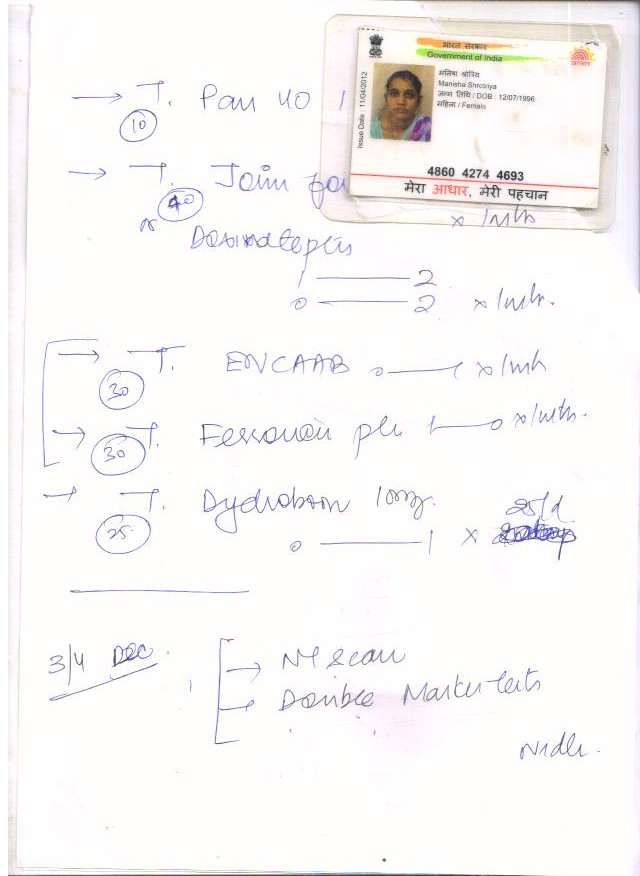 भारत सरकार
Government of India
आधार
Issue Date : 11/04/2012
मनिषा श्रोत्रिय
Manisha Shrotriya
जन्म तिथि / DOB : 12/07/1996
महिला / Female
4860 4274 4693
मेरा आधार, मेरी पहचान
→ T. Pan 40 1
10
→ T.
40
x 1mth
1 — 2
0 — 2 x 1mth.
→ T. ENCAAB 0 — 1 x 1mth
30
→ T. 1 — 0 x 1mth.
30
→ T. 10mg.
25
0 — 1 x 25/d
3/4 Dec.
→ NT scan
→ Double Marker tests